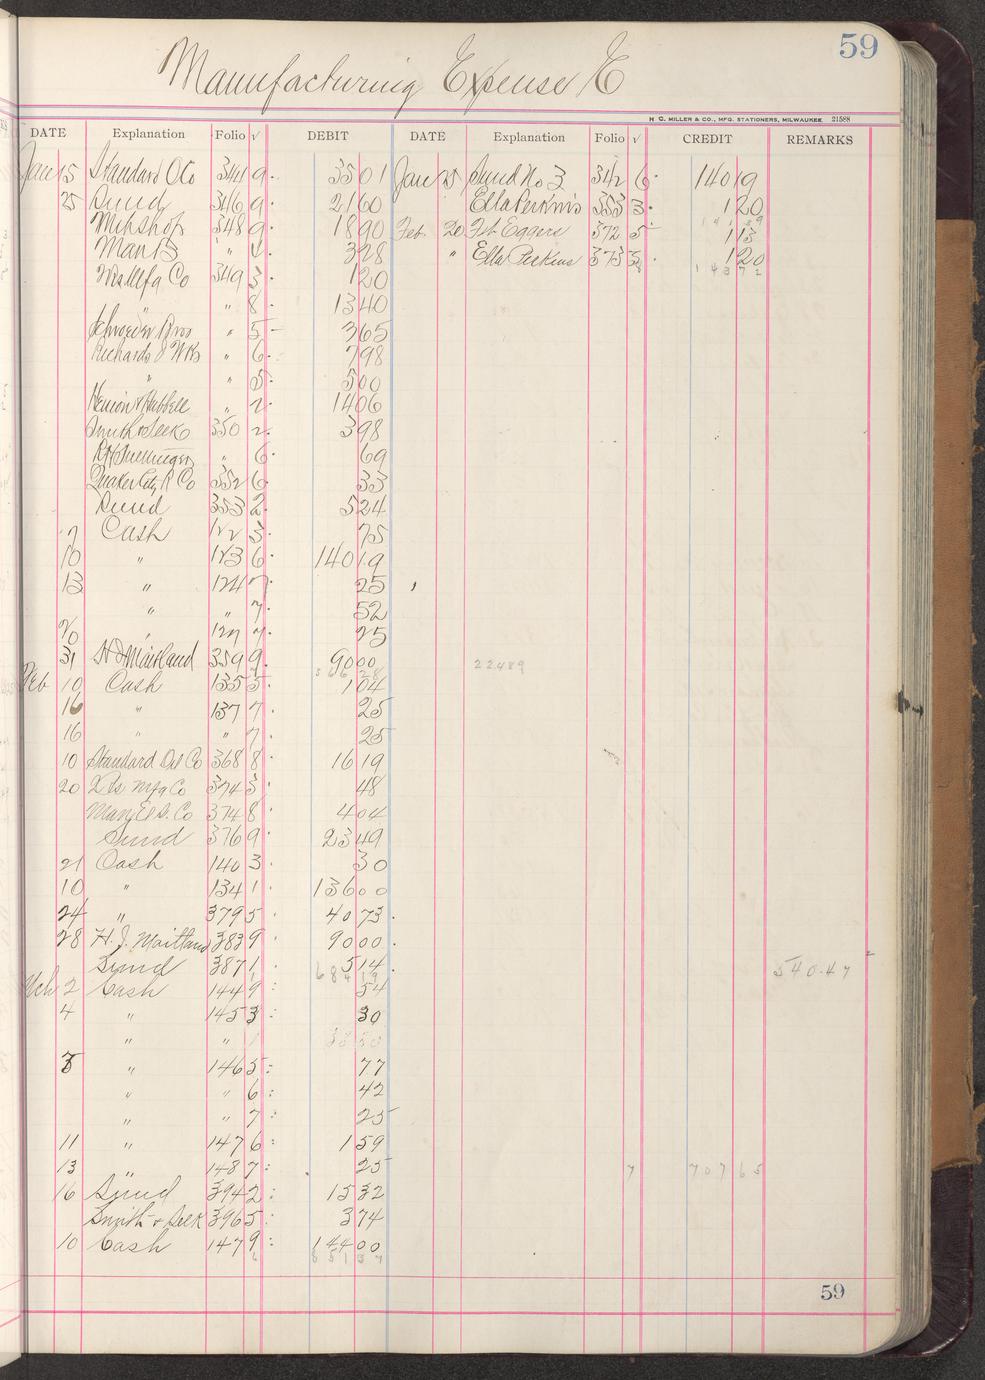 59
Manufacturing Expense E
H. G. MILLER & CO., MFG. STATIONERS, MILWAUKEE 21588
DATE Explanation Folio √ DEBIT DATE Explanation Folio √ CREDIT REMARKS
Jan 15 Standard O Co 344 9 3501 Jan 15 Sund No 3 342 6 140 19
25 Sund 346 9 2160 Ella Perkins 353 3 1 20
Mchshop 348 9 1890 Feb. 20 Feb Eggers 372 5 1 13
Man B " 4 328 " Ella Perkins 373 1 20
Mfg Co 349 3 120 143 72
" " 8 1340
Schroeder Bros " 5 365
Richards I Wks " 6 798
" " 5 500
Henion & Hubbell " 2 1406
Smith & Seek 350 2 398
" 6 69
Quaker City R Co 352 6 33
Sund 353 2 524
7 Cash 122 3 75
10 " 123 6 140 19
13 " 124 7 25
" " 7 52
20 " 127 7 25
31 H J Maitland 359 9 90 00
22489
Feb 10 Cash 135 5 1 04
16 " 137 7 25
16 " " 7 25
10 Standard Oil Co 368 8 16 19
20 Mfg Co 374 3 48
Man El S. Co 374 8 4 04
Sund 376 9 23 49
21 Cash 140 3 30
10 " 134 1 136 00
24 " 379 5 40 73
28 H. J. Maitland 383 9 90 00
Sund 387 1 5 14 540.47
684 19
Mch 2 Cash 144 9 54
4 " 145 3 30
" " 1 38 50
5 " 146 5 77
" " 6 42
" " 7 25
11 " 147 6 1 59
13 " 148 7 25 7 707 65
16 Sund 394 2 15 32
Smith & Seek 396 5 3 74
10 Cash 147 9 144 00
851 37
59